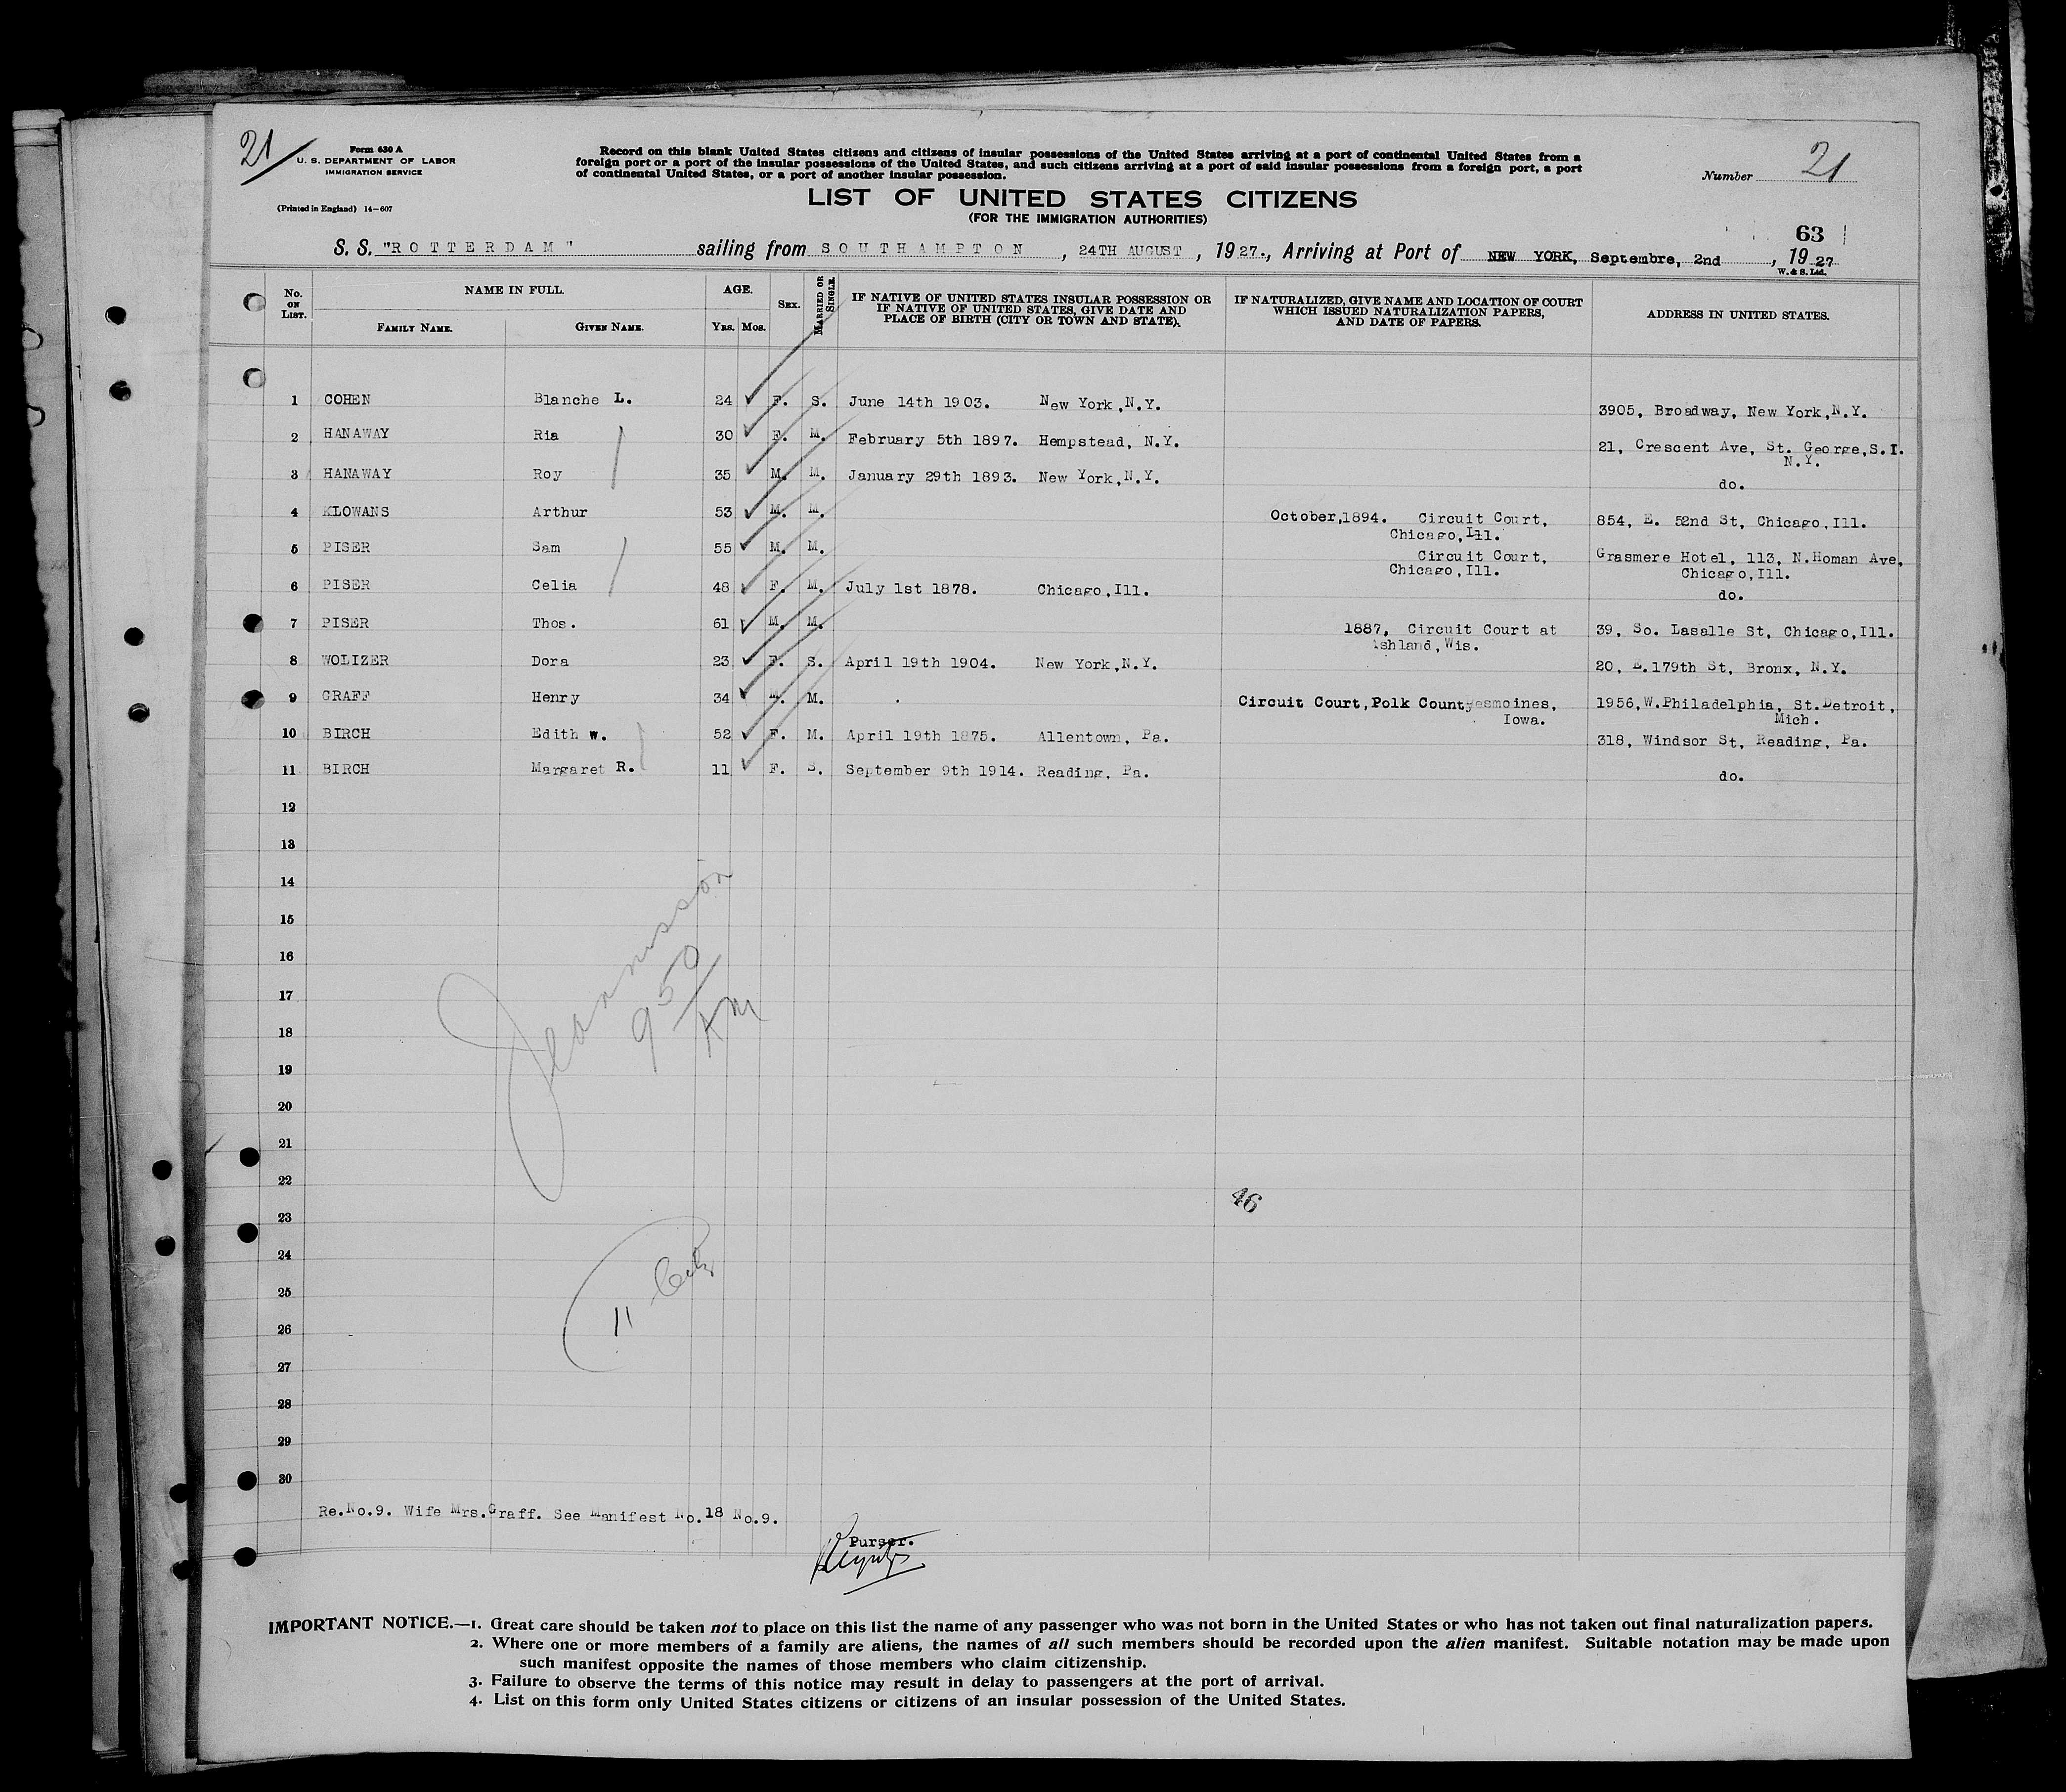 21
Form 630 A
U. S. DEPARTMENT OF LABOR
IMMIGRATION SERVICE
(Printed in England) 14—607
Record on this blank United States citizens and citizens of insular possessions of the United States arriving at a port of continental United States from a
foreign port or a port of the insular possessions of the United States, and such citizens arriving at a port of said insular possessions from a foreign port, a port
of continental United States, or a port of another insular possession.
Number 21
LIST OF UNITED STATES CITIZENS
(FOR THE IMMIGRATION AUTHORITIES)
63
S. S. "ROTTERDAM" sailing from SOUTHAMPTON, 24TH AUGUST, 1927., Arriving at Port of NEW YORK, Septembre, 2nd, 1927
W. & S. Ltd.
No. ON LIST. NAME IN FULL. AGE. SEX. MARRIED OR SINGLE. IF NATIVE OF UNITED STATES INSULAR POSSESSION OR IF NATIVE OF UNITED STATES, GIVE DATE AND PLACE OF BIRTH (CITY OR TOWN AND STATE). IF NATURALIZED, GIVE NAME AND LOCATION OF COURT WHICH ISSUED NATURALIZATION PAPERS, AND DATE OF PAPERS. ADDRESS IN UNITED STATES.
FAMILY NAME. GIVEN NAME. YRS. MOS.
1 COHEN Blanche L. 24 F. S. June 14th 1903. New York, N.Y. 3905, Broadway, New York, N.Y.
2 HANAWAY Ria 30 F. M. February 5th 1897. Hempstead, N.Y. 21, Crescent Ave, St. George, S.I.
N.Y.
3 HANAWAY Roy 35 M. M. January 29th 1893. New York, N.Y. do.
4 KLOWANS Arthur 53 M. M. October, 1894. Circuit Court, 854, E. 52nd St, Chicago, Ill.
Chicago, Ill.
5 PISER Sam 55 M. M. Circuit Court, Grasmere Hotel, 113, N. Homan Ave,
Chicago, Ill. Chicago, Ill.
6 PISER Celia 48 F. M. July 1st 1878. Chicago, Ill. do.
7 PISER Thos. 61 M. M. 1887, Circuit Court at 39, So. Lasalle St, Chicago, Ill.
Ashland, Wis.
8 WOLIZER Dora 23 F. S. April 19th 1904. New York, N.Y. 20, E. 179th St, Bronx, N.Y.
9 GRAFF Henry 34 M. M. Circuit Court, Polk County esmoines, 1956, W. Philadelphia, St. Detroit,
Iowa. Mich.
10 BIRCH Edith W. 52 F. M. April 19th 1875. Allentown, Pa. 318, Windsor St, Reading, Pa.
11 BIRCH Margaret R. 11 F. S. September 9th 1914. Reading, Pa. do.
12
13
14
15
16
17
18
19
20
21
22
23
24
25
26
27
28
29
30
950
AM
46
11
Re. No. 9. Wife Mrs. Graff. See Manifest No. 18 No. 9.
Purser.
IMPORTANT NOTICE.—1. Great care should be taken not to place on this list the name of any passenger who was not born in the United States or who has not taken out final naturalization papers.
2. Where one or more members of a family are aliens, the names of all such members should be recorded upon the alien manifest. Suitable notation may be made upon
such manifest opposite the names of those members who claim citizenship.
3. Failure to observe the terms of this notice may result in delay to passengers at the port of arrival.
4. List on this form only United States citizens or citizens of an insular possession of the United States.